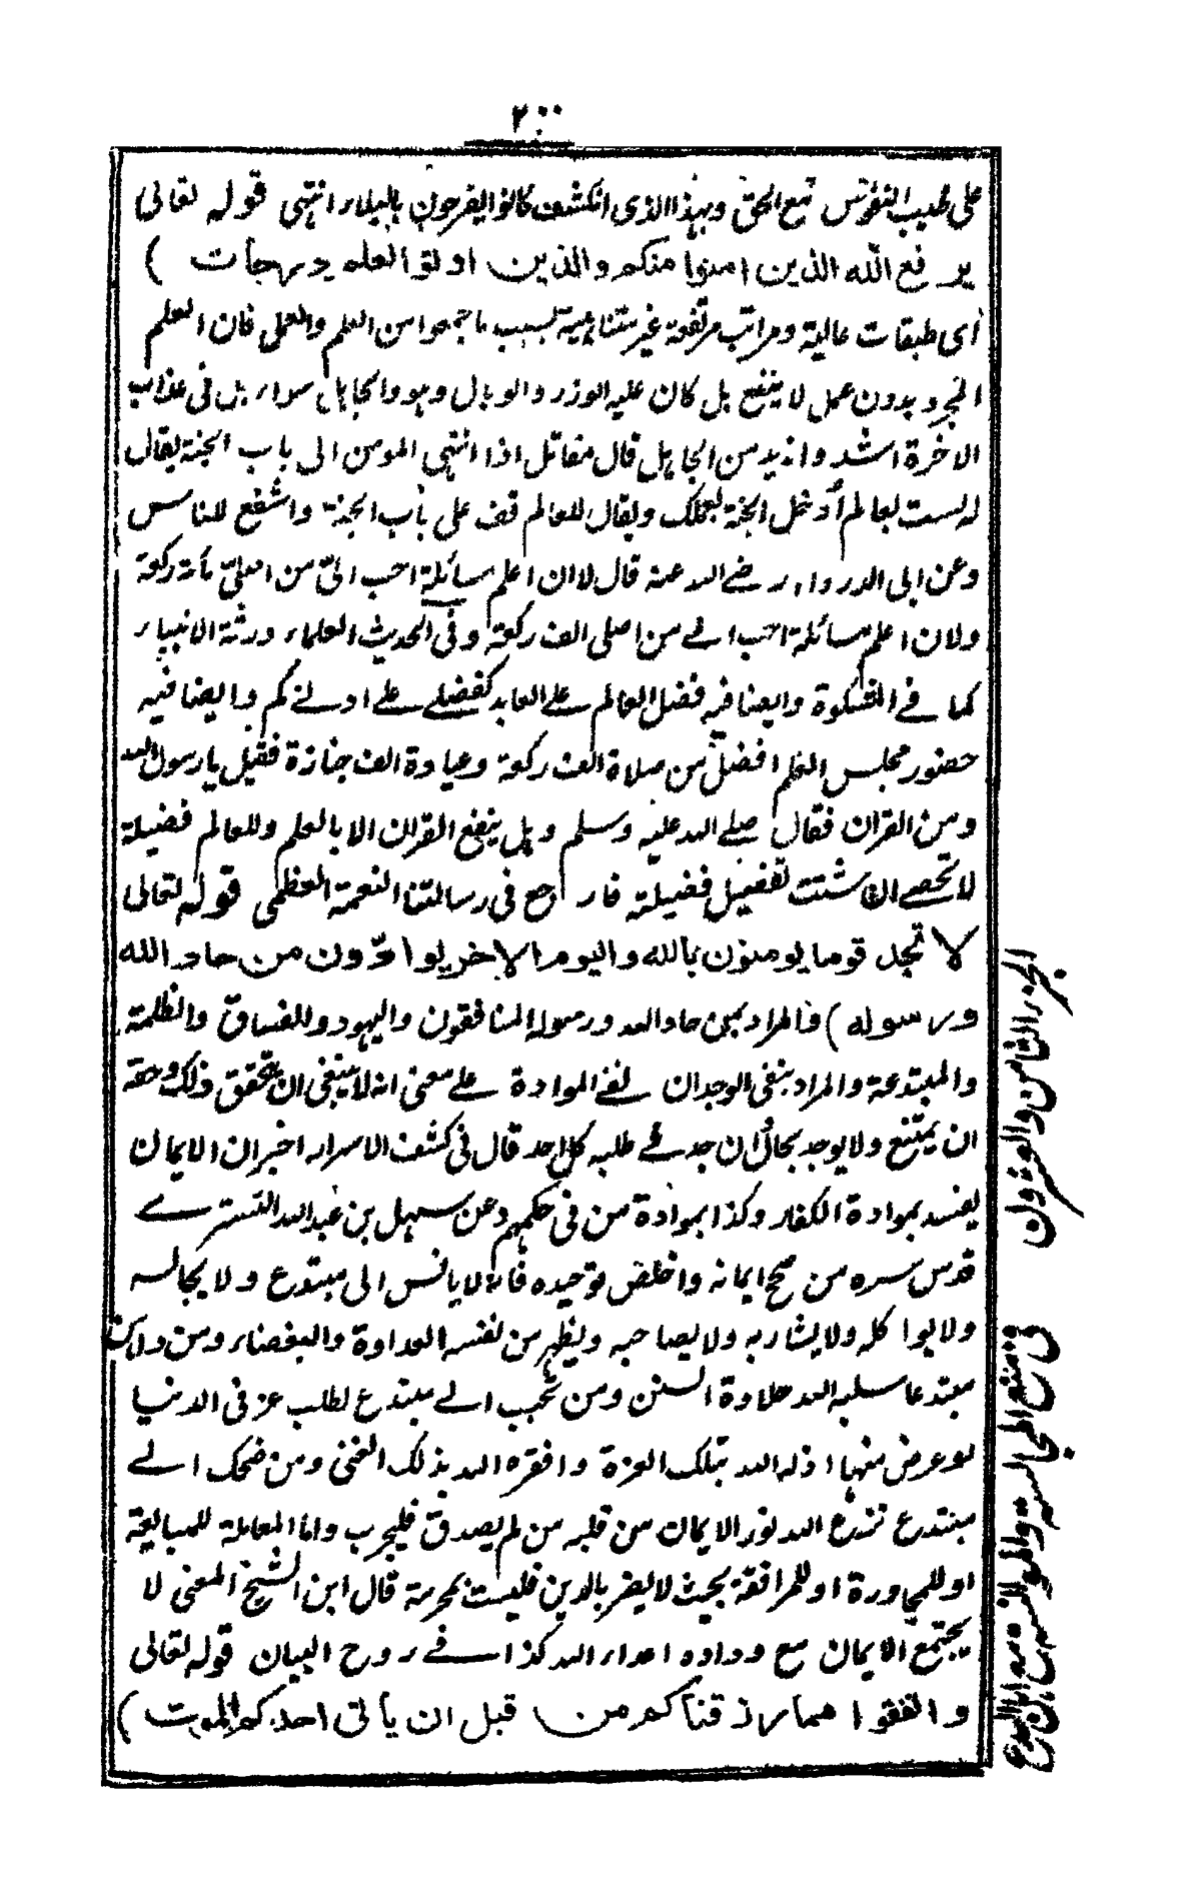 ٢٠٠
على طبيب النفوس تبع الحق وبهذا الذى انكشف كانوا يفرحون بالبلاء انتهى قوله تعالى
يرفع الله الذين امنوا منكم والذين اوتوا العلم درجات )
أى طبقات عالية ومراتب مرتفعة غير متناهية بسبب ما جمعوا من العلم والعمل فان العلم
المجرد بدون عمل لا ينفع بل كان عليه الوزر والوبال وهو والجاهل سواء بل فى عذاب
الاخرة اشد وازيد من الجاهل قال مقاتل اذا انتهى المومن الى باب الجنة يقال
له لست بعالم أدخل الجنة بعملك ويقال للعالم قف على باب الجنة واشفع للناس
وعن ابى الدرداء رضے الله عنه قال لان اعلم مسائلة احب الىّ من اصلىّ مائة ركعة
ولان اعلم مسائلة احب الے من اصلى الف ركعة وفى الحديث العلماء ورثة الانبياء
كما فے المشكوة وايضا فيه فضل العالم علے العابد كفضلے علے ادنے كم وايضا فيه
حضور مجلس العلم افضل من صلاة الف ركعة وعيادة الف جنازة فقيل يا رسول الله
ومن القران فقال صلے الله عليه وسلم وهل ينفع القران الا بالعلم وللعالم فضيلة
لا تحصے ان شئت تفضيل فضيلته فارجع فى رسالتنا النعمة العظمى قوله تعالى
لا تجد قوما يومنون بالله واليوم الاخر يوادّون من حاد الله
ورسوله ) فالمراد بمن حاد الله ورسوله المنافقون واليهود والفساق والظلمة
والمبتدعة والمراد بنفى الوجدان نفے الموادة علے معنى انه لا ينبغى ان يتحقق ذلك وحقه
ان يمتنع ولا يوجد بحال ان جد فے طلبه كل احد قال فى كشف الاسرار اخبر ان الايمان
يفسد بموادة الكفار وكذا بموادة من فى حكمهم وعن سهل بن عبد الله التسترے
قدس سره من صح ايمانه واخلص توحيده فانه لا يانس الى مبتدع ولا يجالسه
ولا يواكله ولا يشاربه ولا يصاحبه ويظهر من نفسه العداوة والبغضاء ومن داهن
مبتدعا سلبه الله حلاوة السنن ومن تحبب الے مبتدع لطلب عز فى الدنيا
او عرض منها اذله الله بتلك العزة وافقره الله بذلك الغنى ومن ضحك الے
مبتدع نزع الله نور الايمان من قلبه من لم يصدق فليجرب واما المعاملة للمبايعة
او للمجاورة او للمرافقة بحيث لا يضر بالدين فليست بمحرمة قال ابن الشيخ المعنى لا
يجتمع الايمان مع وداده اعداء الله كذا فے روح البيان قوله تعالى
وانفقوا مما رزقناكم من قبل ان يأتى احدكم الموت )
الجزء الثامن والعشرون
ف منع المجالسة والموانسة من اهل البدع